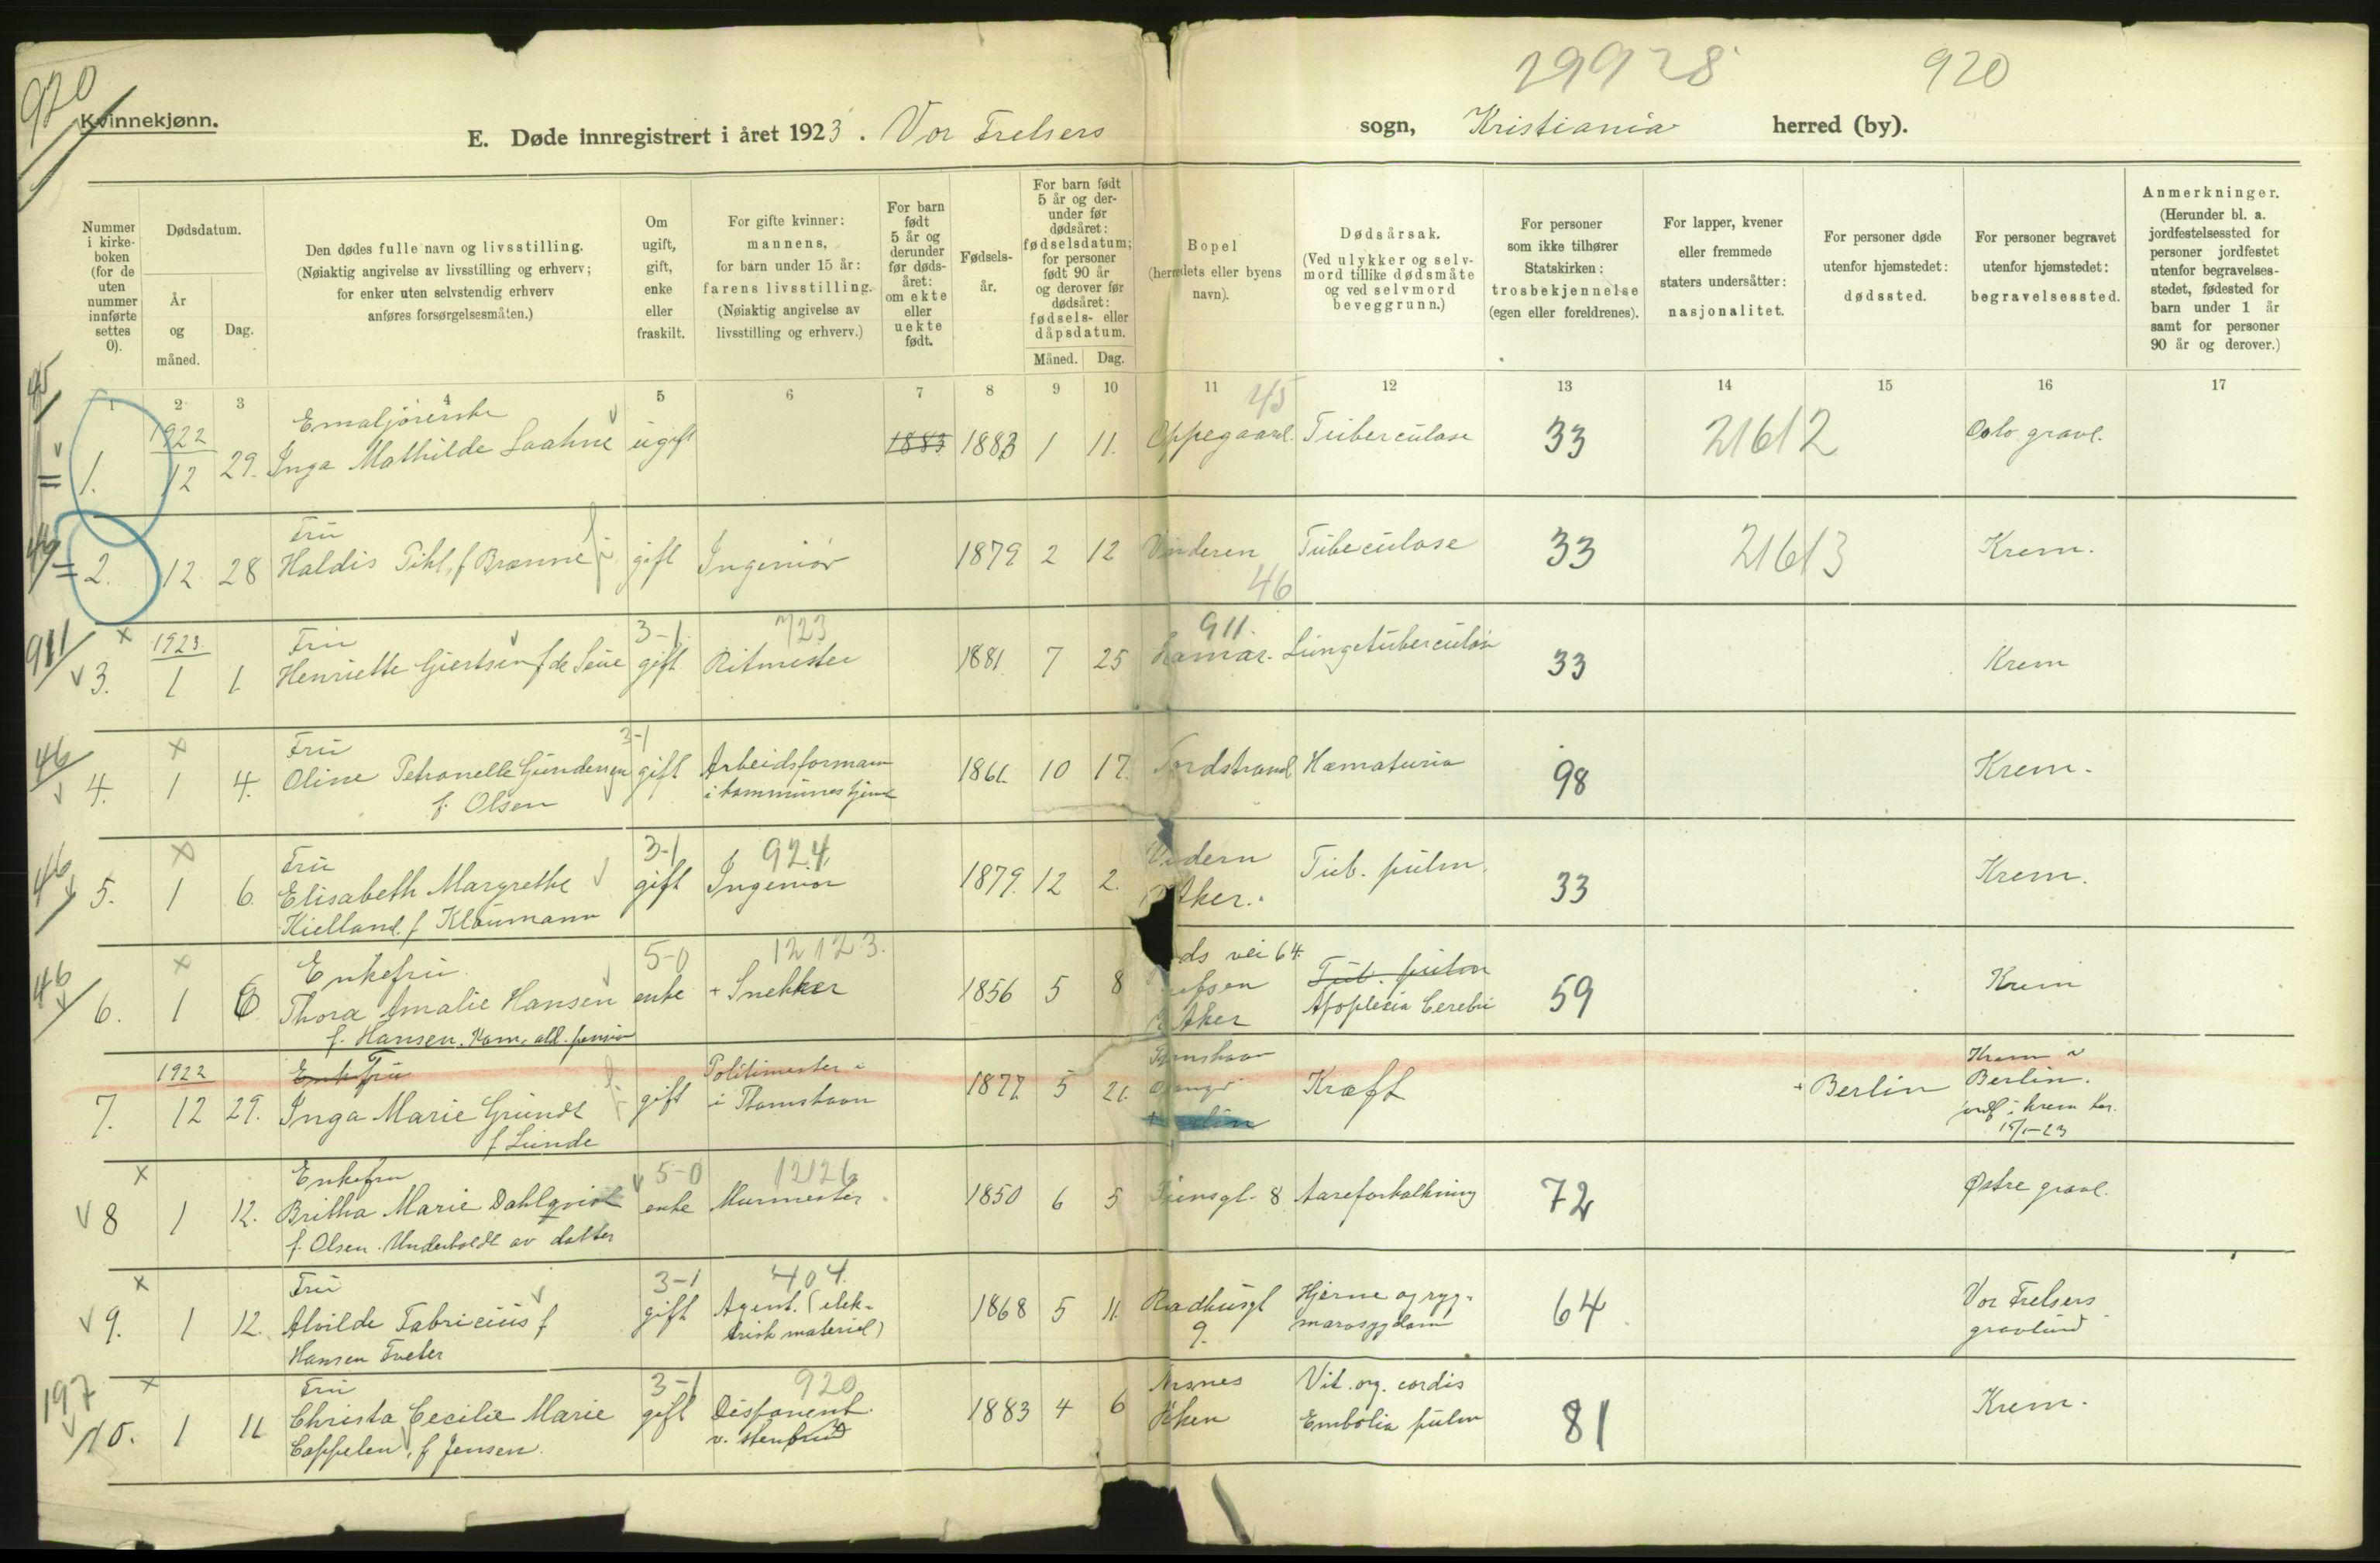 920
29928
920
Kvinnekjønn.
E. Døde innregistrert i året 1923. Vor Frelsers sogn, Kristiania herred (by).
Nummer i kirke-boken (for de uten nummer innførte settes 0).
Dødsdatum.
År og måned.
Dag.
Den dødes fulle navn og livsstilling.
(Nøiaktig angivelse av livsstilling og erhverv; for enker uten selvstendig erhverv anføres forsørgelsesmåten.)
Om ugift, gift, enke eller fraskilt.
For gifte kvinner: mannens, for barn under 15 år: farens livsstilling.
(Nøiaktig angivelse av livsstilling og erhverv.)
For barn født 5 år og derunder før døds-året: om ekte eller uekte født.
Fødsels-år.
For barn født 5 år og der-under før dødsåret: fødselsdatum; for personer født 90 år og derover før dødsåret: fødsels- eller dåpsdatum.
Måned. Dag.
Bopel (herredets eller byens navn).
Dødsårsak.
(Ved ulykker og selv-mord tillike dødsmåte og ved selvmord beveggrunn.)
For personer som ikke tilhører Statskirken: trosbekjennelse (egen eller foreldrenes).
For lapper, kvener eller fremmede staters undersåtter: nasjonalitet.
For personer døde utenfor hjemstedet: dødssted.
For personer begravet utenfor hjemstedet: begravelsessted.
Anmerkninger.
(Herunder bl. a. jordfestelsessted for personer jordfestet utenfor begravelses-stedet, fødested for barn under 1 år samt for personer 90 år og derover.)
1 2 3 4 5 6 7 8 9 10 11 12 13 14 15 16 17
45
1922 Emaljørerske
1. 12 29. Inga Mathilde Laahne ugift 1883 1883 1 11. Oppegaard. Tuberculose 33 21612 Oslo gravl.
Fru
2. 12 28 Haldis Pihl, f Brænne gift Ingeniør 1879 2 12 Vinderen Tubeculose 33 21613 Krem.
46
911 1923 Fru 3-1 723 911.
3. 1 1. Henriette Giertsen f de Seue gift Ritmester 1881 7 25 Hamar. Lungetuberculose 33 Krem
46 Fru 3-1
4. 1 4. Oline Petronelle Gundersen gift Arbeidsformann 1861. 10 17. Nordstrand Hæmaturia 98 Krem.
f. Olsen i kommunes tjeneste
46 Fru 3-1 924
5. 1 6. Elisabeth Margrethe gift Ingeniør 1879. 12 2. Aker. Tub. pulm. 33 Krem.
Kielland f Klaumann
46 Enkefru 5-0 12123.
6. 1 6 Thora Amalie Hansen enke + Snekker 1856 5 8 vei 64. Tub. pulm Apoplexia Cerebri 59 Krem
f. Hansen. Kom. ald. pension Aker
1922 Enkefru Fru Politimester
7. 12 29. Inga Marie Grundt gift i Thorshavn 1877. 5 21. Kræft + Berlin Krem Berlin.
f Lunde i krem her. 15/1-23
Enkefru 5-0 12126
8 1 12. Britha Marie Dahlqvist enke Murmester 1850 6 5 8 Aareforkalkning 72 Østre gravl.
f. Olsen. Underholdt av datter
Fru 3-1 404.
9. 1 12. Alvilde Fabricius f gift Agent. (elek-trisk materiel) 1868 5 11. Raadhusgt 9. Hjerne og ryg-marvsygdom 64 Vor Frelsers gravlund
Hansen Tveter
197 Fru 3-1 920
10. 1 11 Christa Cecilie Marie gift Disponent v. stenbrud 1883 4 6 Vit. org. cordis Embolia pulm 81 Krem.
Cappelen, f Jensen.